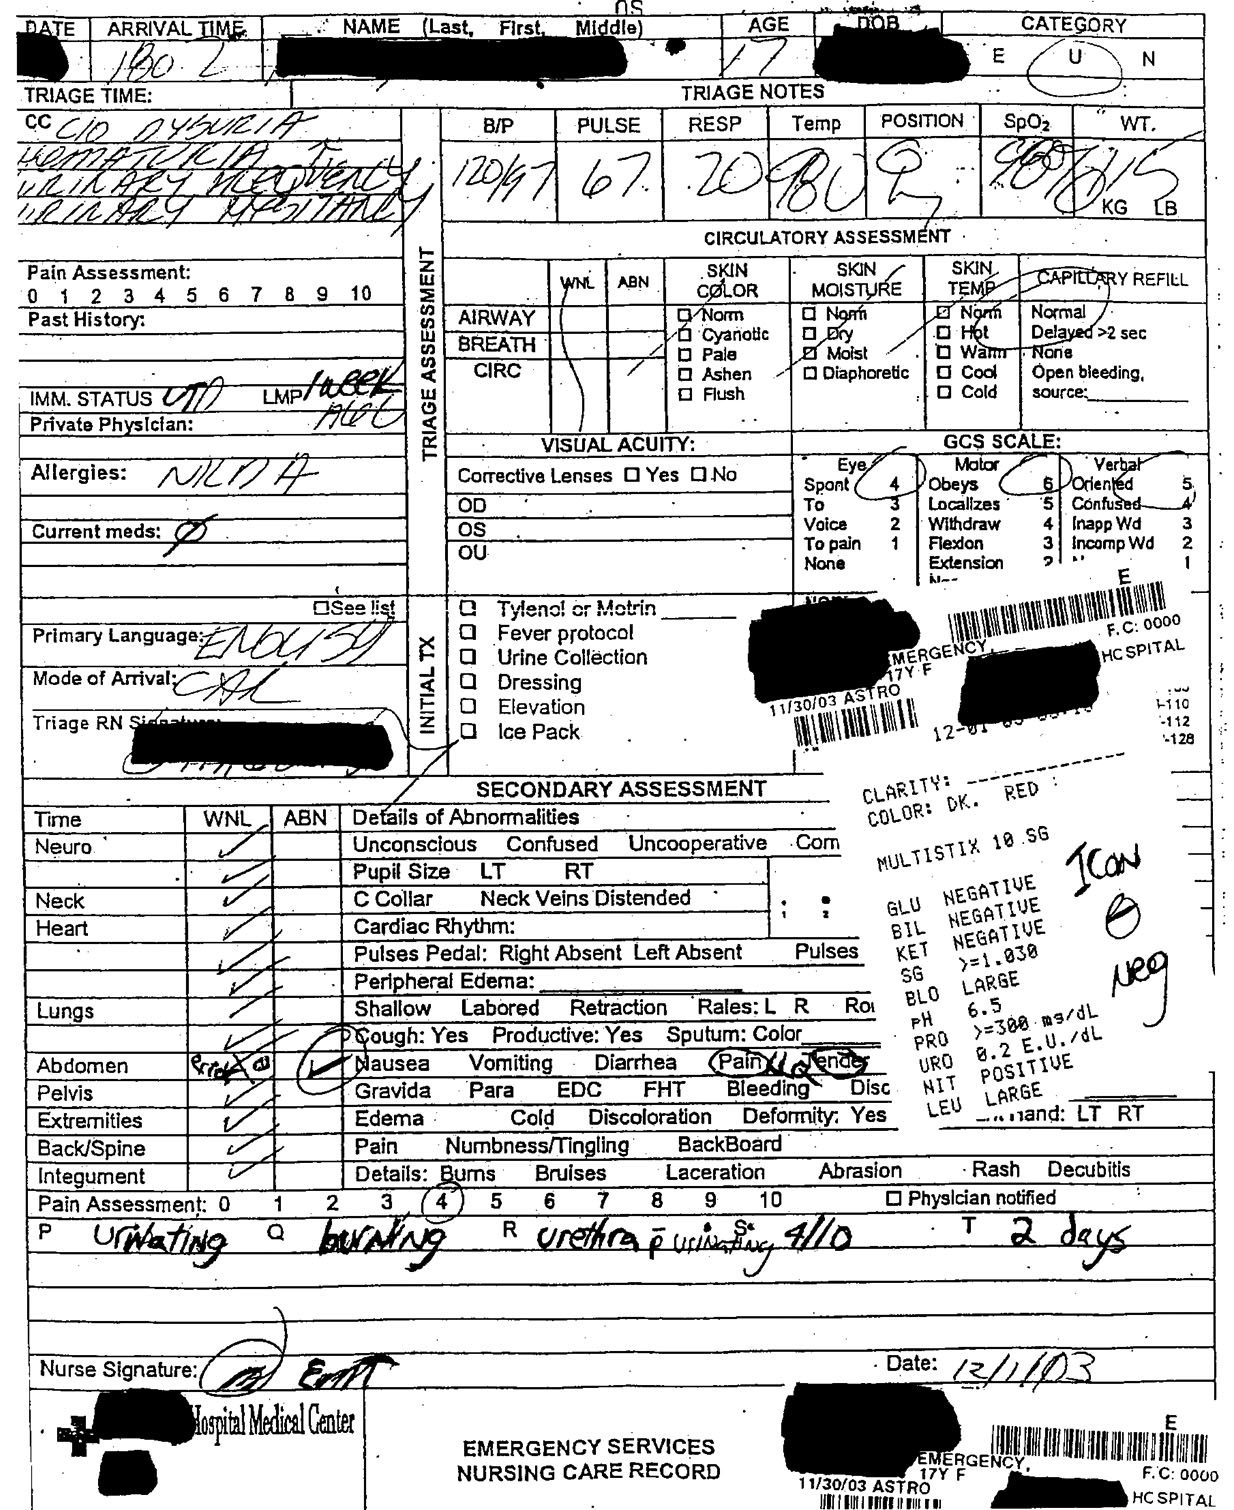 DATE ARRIVAL TIME NAME (Last, First, Middle) AGE DOB CATEGORY
17 E U N
TRIAGE TIME: TRIAGE NOTES
CC C/O DYSURIA
HEMATURIA
URINARY FREQUENCY
URINARY HESITANCY
B/P PULSE RESP Temp POSITION SpO2 WT.
120/97 67 20 980
KG LB
TRIAGE ASSESSMENT
CIRCULATORY ASSESSMENT
Pain Assessment:
0 1 2 3 4 5 6 7 8 9 10
Past History:
WNL ABN SKIN COLOR SKIN MOISTURE SKIN TEMP CAPILLARY REFILL
AIRWAY ☐ Norm ☐ Norm ☐ Norm Normal
BREATH ☐ Cyanotic ☐ Dry ☐ Hot Delayed >2 sec
CIRC ☐ Pale ☐ Moist ☐ Warm None
☐ Ashen ☐ Diaphoretic ☐ Cool Open bleeding,
☐ Flush ☐ Cold source:
IMM. STATUS UTD LMP 1 week
AGO
Private Physician:
Allergies: NKDA
Current meds: Ø
☐See list
VISUAL ACUITY:
Corrective Lenses ☐ Yes ☐ No
OD
OS
OU
GCS SCALE:
Eye Motor Verbal
Spont 4 Obeys 6 Oriented 5
To 3 Localizes 5 Confused 4
Voice 2 Withdraw 4 Inapp Wd 3
To pain 1 Flexion 3 Incomp Wd 2
None Extension 2 1
Primary Language: ENGLISH
Mode of Arrival: CAR
Triage RN Signature:
INITIAL TX
☐ Tylenol or Motrin
☐ Fever protocol
☐ Urine Collection
☐ Dressing
☐ Elevation
☐ Ice Pack
E
F.C: 0000
EMERGENCY,
17Y F
HCSPITAL
11/30/03 ASTRO
-110
-112
-128
CLARITY:
COLOR: DK. RED
MULTISTIX 10 SG
GLU NEGATIVE
BIL NEGATIVE
KET NEGATIVE
SG >=1.030
BLO LARGE
PH 6.5
PRO >=300 mg/dL
URO 0.2 E.U./dL
NIT POSITIVE
LEU LARGE
ICON
neg
SECONDARY ASSESSMENT
Time WNL ABN Details of Abnormalities
Neuro Unconscious Confused Uncooperative Com
Pupil Size LT RT
Neck C Collar Neck Veins Distended
Heart Cardiac Rhythm:
Pulses Pedal: Right Absent Left Absent Pulses
Peripheral Edema:
Lungs Shallow Labored Retraction Rales: L R
Cough: Yes Productive: Yes Sputum: Color
Abdomen Nausea Vomiting Diarrhea Pain Tender
Pelvis Gravida Para EDC FHT Bleeding Disc
Extremities Edema Cold Discoloration Deformity: Yes hand: LT RT
Back/Spine Pain Numbness/Tingling BackBoard
Integument Details: Burns Bruises Laceration Abrasion Rash Decubitis
Pain Assessment: 0 1 2 3 4 5 6 7 8 9 10 ☐ Physician notified
P urinating Q burning R urethra p̄ urinating S 4/10 T 2 days
Nurse Signature: EMT Date: 12/1/03
Hospital Medical Center
EMERGENCY SERVICES
NURSING CARE RECORD
E
EMERGENCY,
17Y F
F.C: 0000
11/30/03 ASTRO
HCSPITAL